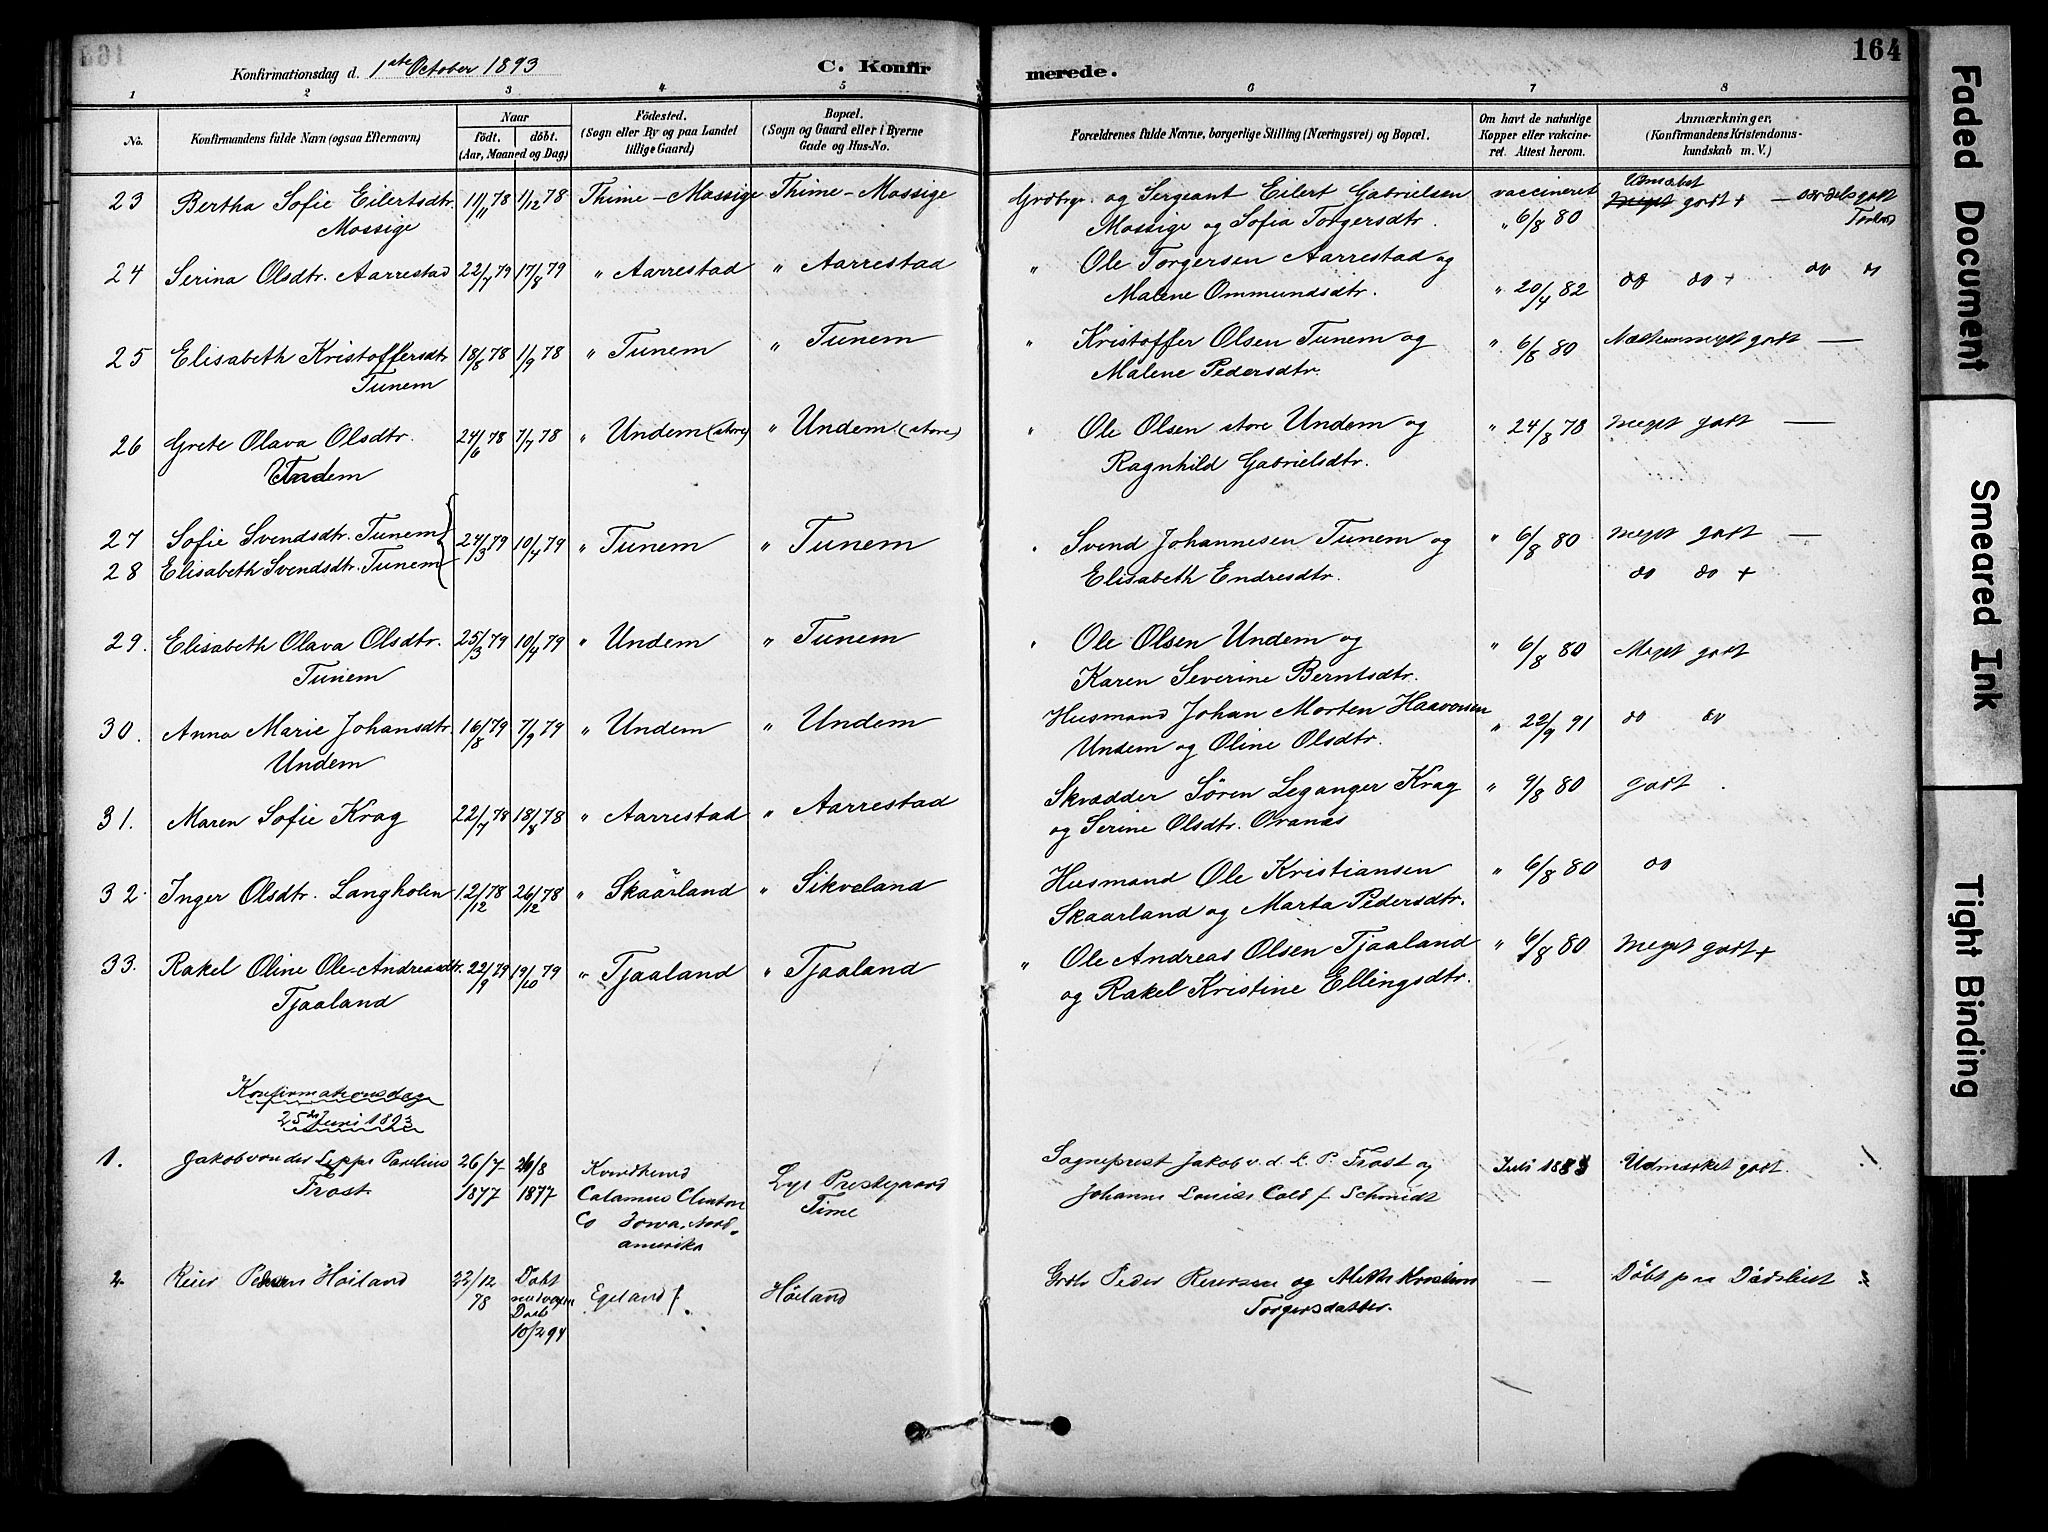 164
Konfirmationsdag d. 1ste October 1893
C. Konfirmerede.
1 2 3 4 5 6 7 8
No.
Konfirmandens fulde Navn (ogsaa Efternavn)
Naar
født. døbt.
(Aar, Maaned og Dag)
Födested.
(Sogn eller By og paa Landet
tillige Gaard)
Bopæl.
(Sogn og Gaard eller i Byerne
Gade og Hus-No.
Forældrenes fulde Navne, borgerlige Stilling (Næringsvei) og Bopæl.
Om havt de naturlige
Kopper eller vakcine-
ret. Attest herom.
Anmærkninger.
(Konfirmandens Kristendoms-
kundskab m. V.)
23 Bertha Sofie Eilertsdtr. 11/11 78 1/12 78 Thime - Mossige Thime - Mossige Grdbrgr. og Sergeant Eilert Gabrielsen vaccineret
Mossige Mossige og Sofia Torgersdtr. " 6/8 80 godt +
24 Serina Olsdtr. Aarrestad 22/7 79 17/8 79 " Aarrestad " Aarrestad " Ole Torgersen Aarrestad og
Malene Ommundsdtr. " 20/4 82 do do + do
25 Elisabeth Kristoffersdtr 18/8 78 1/9 78 " Tunem " Tunem " Kristoffer Olsen Tunem og " 6/8 80 godt —
Tunem Malene Pedersdtr.
26 Grete Olava Olsdtr. 24/6 78 7/7 78 " Undem (store) " Undem (store) " Ole Olsen store Undem og " 24/8 78 Meget godt —
Undem Ragnhild Gabrielsdtr.
27 Sofie Svendsdtr. Tunem 24/3 79 10/4 79 " Tunem " Tunem " Svend Johannesen Tunem og " 6/8 80 Meget godt —
28 Elisabeth Svendsdtr. Tunem Elisabeth Endresdtr. do do +
29. Elisabeth Olava Olsdtr. 25/3 79 10/4 79 " Undem " Tunem " Ole Olsen Undem og " 6/8 80 Meget godt
Tunem Karen Severine Berntsdtr.
30. Anna Marie Johansdtr. 16/8 79 7/9 79 " Undem " Undem Husmand Johan Morten Haavorsen " 22/9 91 do do
Undem Undem og Oline Olsdtr.
31. Maren Sofie Krag 22/7 78 18/8 78 " Aarrestad " Aarrestad Skrædder Sören Leganger Krag " 9/8 80 godt.
og Serine Olsdtr. Oranæs
32. Inger Olsdtr. Langholen 12/12 78 26/12 78 " Skaarland " Sikveland Husmand Ole Kristiansen " 6/8 80 do
Skaarland og Marta Pedersdtr.
33. Rakel Oline Ole-Andreasdtr. 22/9 79 19/10 79 " Tjaaland " Tjaaland " Ole Andreas Olsen Tjaaland " 6/8 80 Meget godt +
Tjaaland og Rakel Kristine Ellingsdtr.
Konfirmationsdag
25de Juni 1893
1. Jakob von der Lippe Parelius 26/7 26/8 Sogneprest Jakob v. d. L. P. Frost og Juli 1883 Udmærket godt.
Frost 1877 1877 Calamus Clinton Lye Prestegaard Johanne Louise Cold f. Schmidt
Co Iowa, Nord- Time
amerika
2. Reier Pedersen Höiland 22/12 Döbt Egeland Höiland Grdbr Peder Reiersen og — Döbt paa
78 10/2 94 Torgersdatter.
Faded Document
Smeared Ink
Tight Binding